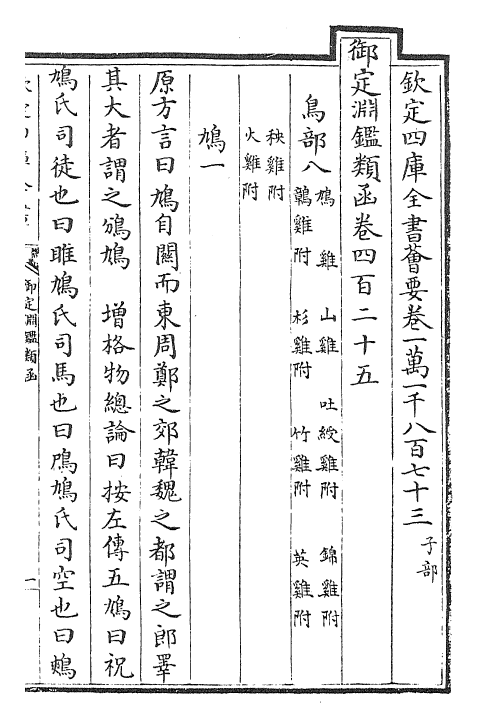 欽定四庫全書薈要卷一萬一千八百七十三 子部
御定淵鑑類函卷四百二十五
鳥部八 鳩 雞 山雞 吐綬雞附 錦雞附
鶡雞附 杉雞附 竹雞附 英雞附
秧雞附
火雞附
鳩一
原方言曰鳩自關而東周鄭之郊韓魏之都謂之郎睪
其大者謂之鳻鳩 增格物總論曰按左傳五鳩曰祝
鳩氏司徒也曰雎鳩氏司馬也曰鳲鳩氏司空也曰鷞
御定淵鑑類函
一